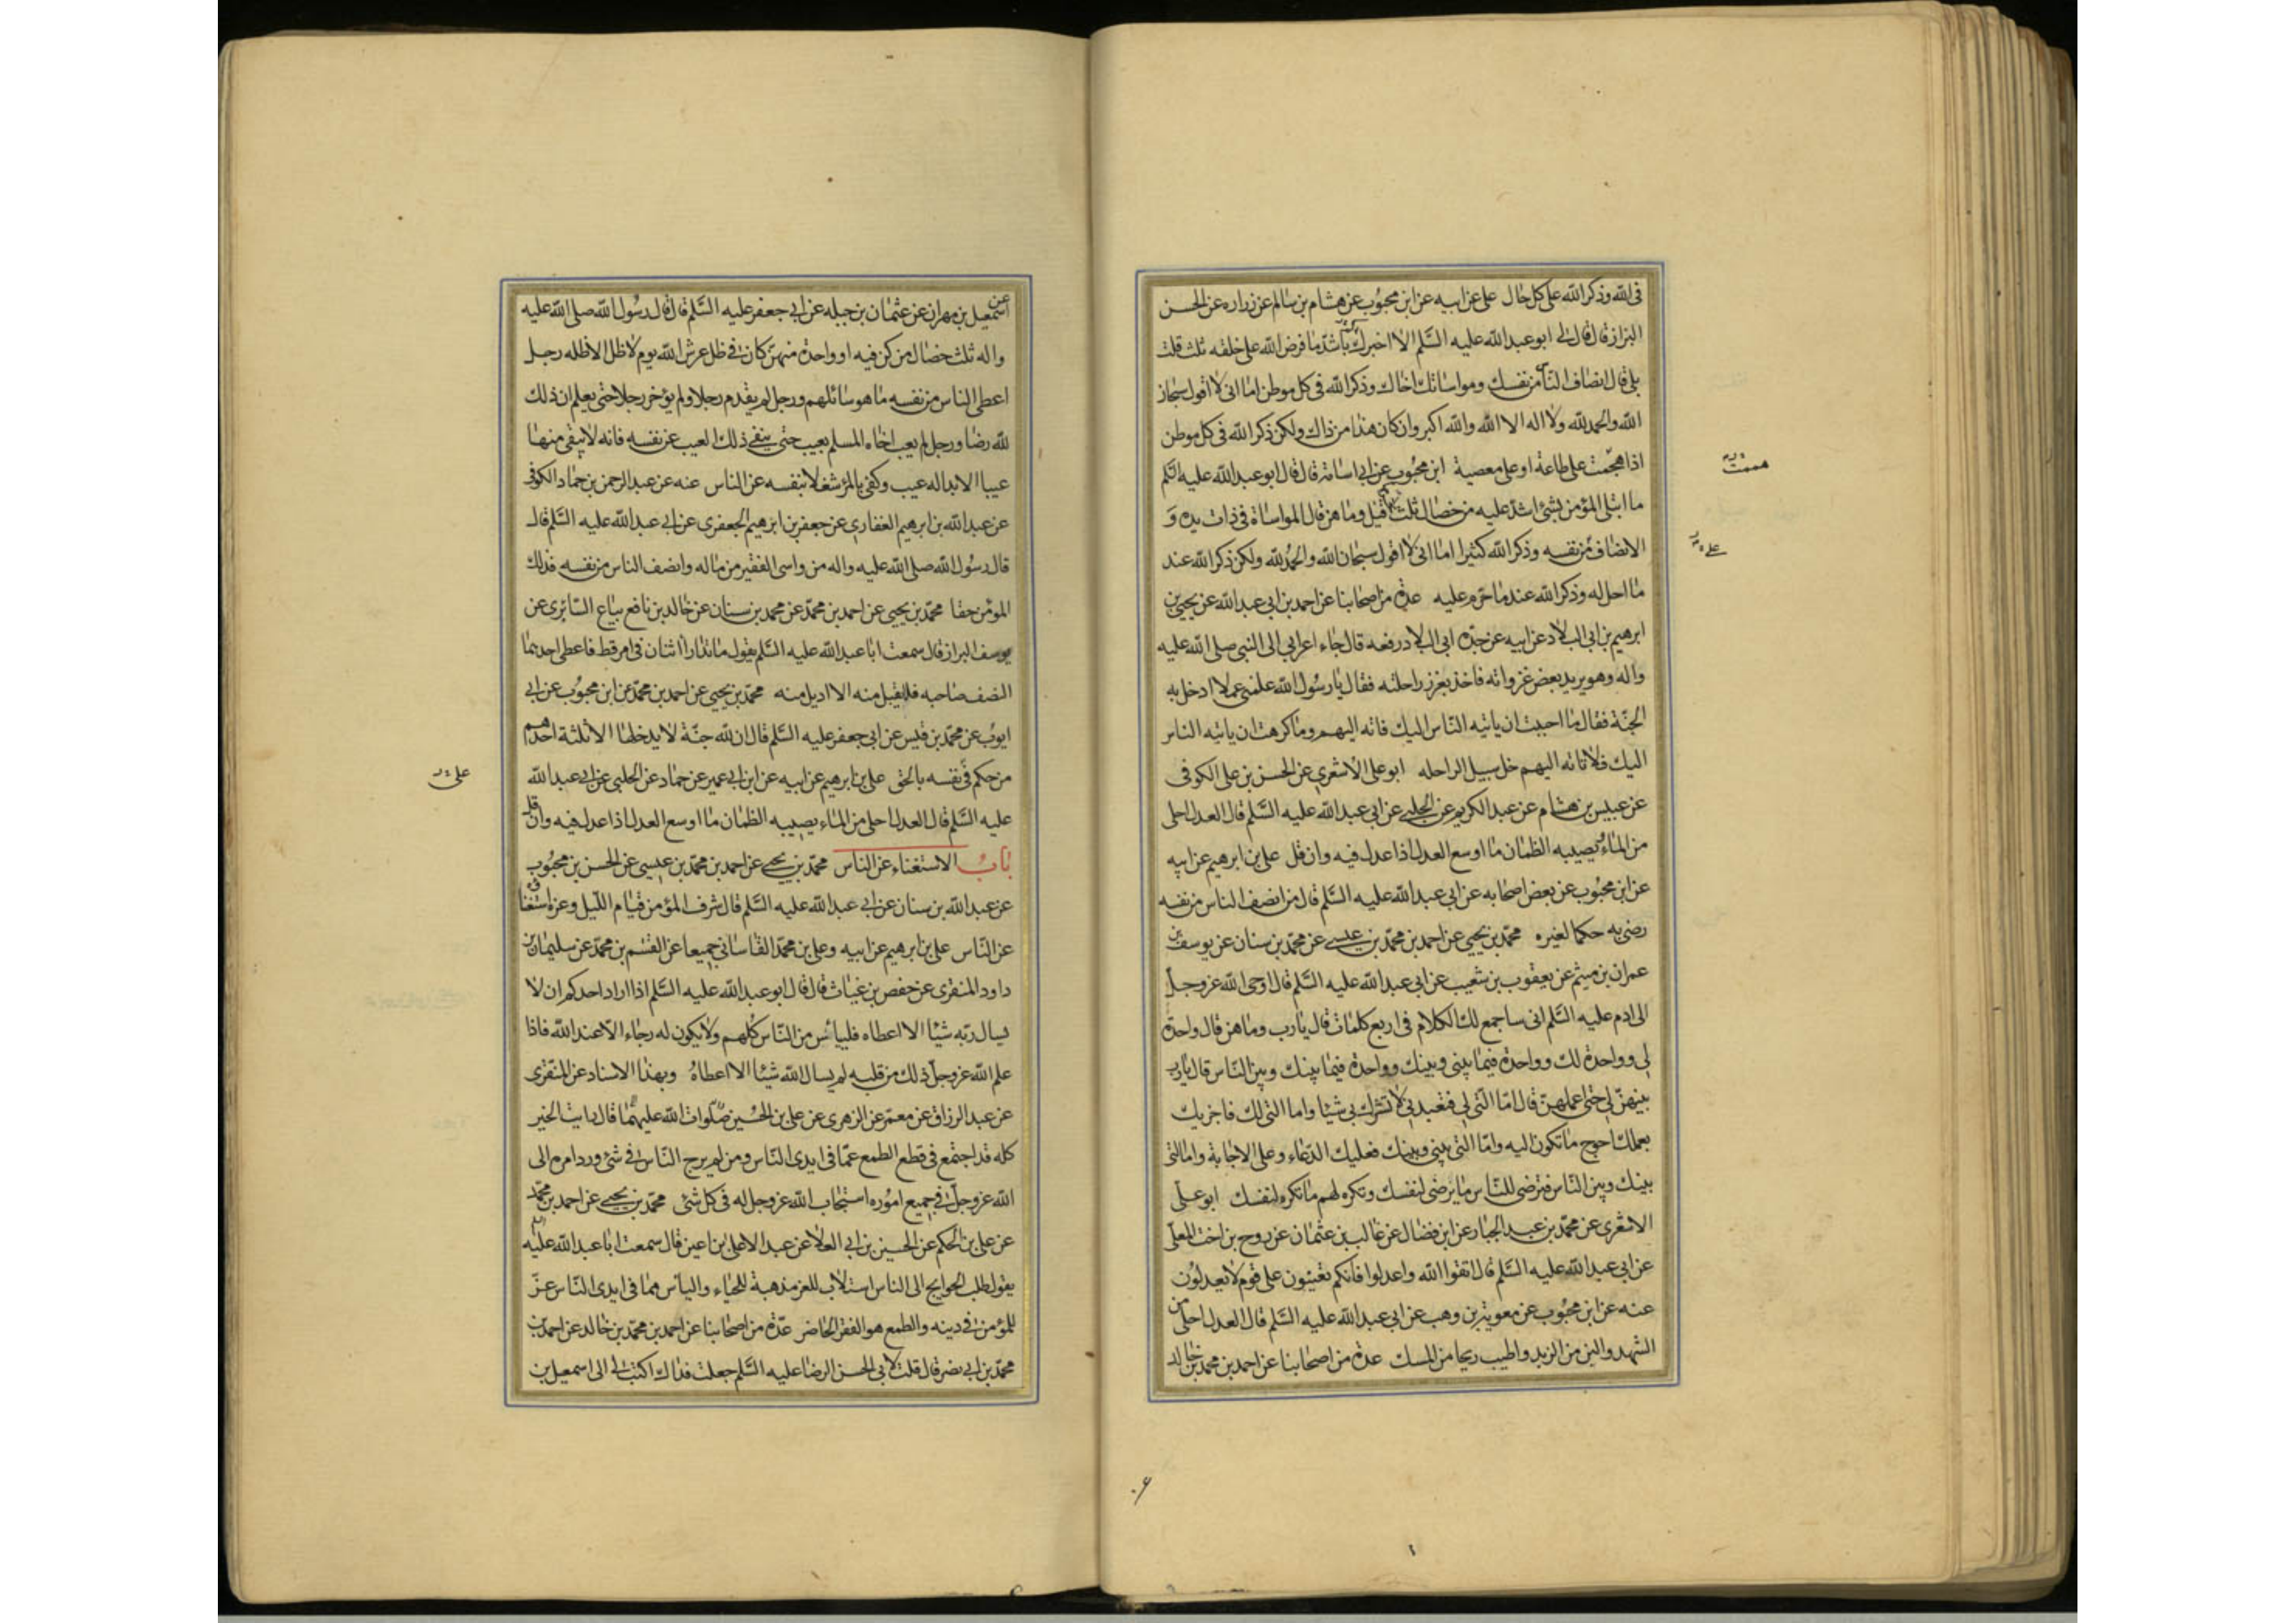 فى الله وذكر الله على كل حال على عن ابيه عن ابن محبوب عن هشام بن سالم عن زراره عن الحسن
البزاز قال قال لى ابو عبد الله عليه السلم الا اخبرك باشد ما فرض الله على خلقه ثلث قلت
بلى قال انصاف الناس من نفسك ومواساتك اخاك وذكر الله فى كل موطن اما انى لا اقول سبحان
الله والحمد لله ولا اله الا الله والله اكبر وان كان هذا من ذاك ولكن ذكر الله فى كل موطن
اذا هجمت على طاعة او على معصية ابن محبوب عن ابى اسامة قال قال ابو عبد الله عليه السلم
هممت
ما ابتلى المؤمن بشئ اشد عليه من خصال ثلث قيل وما هن قال المواساة فى ذات يده و
الانصاف من نفسه وذكر الله كثيرا اما انى لا اقول سبحان الله والحمد لله ولكن ذكر الله عند
ما احل له وذكر الله عند ما حرم عليه عدة من اصحابنا عن احمد بن ابى عبد الله عن يحيى بن
ابرهيم بن ابى البلاد عن ابيه عن جده ابى البلاد رفعه قال جاء اعرابى الى النبى صلى الله عليه
واله وهو يريد بعض غزواته فاخذ بغرز راحلته فقال يا رسول الله علمنى عملا ادخل به
الجنة فقال ما احببت ان ياتيه الناس اليك فاته اليهم وما كرهت ان ياتيه الناس
اليك فلا تاته اليهم خل سبيل الراحله ابو على الاشعرى عن الحسن بن على الكوفى
عن عبيس بن هشام عن عبد الكريم عن الحلبى عن ابى عبد الله عليه السلم قال العدل احلى
من الماء يصيبه الظمان ما اوسع العدل اذا عدل فيه وان قل على بن ابرهيم عن ابيه
عن ابن محبوب عن بعض اصحابه عن ابى عبد الله عليه السلم قال من انصف الناس من نفسه
رضى به حكما لغيره محمد بن يحيى عن احمد بن محمد بن عيسى عن محمد بن سنان عن يوسف بن
عمران بن ميثم عن يعقوب بن شعيب عن ابى عبد الله عليه السلم قال اوحى الله عز وجل
الى ادم عليه السلم انى ساجمع لك الكلام فى اربع كلمات قال يا رب وما هن قال واحدة
لى وواحدة لك وواحدة فيما بينى وبينك وواحدة فيما بينك وبين الناس قال يا رب
بينهن لى حتى اعملهن قال اما التى لى فتعبدنى لا تشرك بى شيئا واما التى لك فاجزيك
بعملك احوج ما تكون اليه واما التى بينى وبينك فعليك الدعاء وعلى الاجابة واما التى
بينك وبين الناس فترضى للناس ما يرضى لنفسك وتكره لهم ما تكره لنفسك ابو على
الاشعرى عن محمد بن عبد الجبار عن ابن فضال عن غالب بن عثمان عن روح بن اخت المعلى
عن ابى عبد الله عليه السلم قال اتقوا الله واعدلوا فانكم تعيبون على قوم لا يعدلون
عنه عن ابن محبوب عن معوية بن وهب عن ابى عبد الله عليه السلم قال العدل احلى من
الشهد والين من الزبد واطيب ريحا من المسك عدة من اصحابنا عن احمد بن محمد بن خالد
عن اسمعيل بن مهران عن عثمان بن جبله عن ابى جعفر عليه السلم قال قال رسول الله صلى الله عليه
واله ثلث خصال من كن فيه او واحدة منهن كان فى ظل عرش الله يوم لا ظل الا ظله رجل
اعطى الناس من نفسه ما هو سائلهم ورجل لم يقدم رجلا ولم يؤخر رجلا حتى يعلم ان ذلك
لله رضا ورجل لم يعب اخاه المسلم بعيب حتى ينفى ذلك العيب عن نفسه فانه لا ينفى منها
عيبا الا بدا له عيب وكفى بالمرء شغلا بنفسه عن الناس عنه عن عبد الرحمن بن حماد الكوفى
عن عبد الله بن ابرهيم الغفارى عن جعفر بن ابرهيم الجعفرى عن ابى عبد الله عليه السلم قال
قال رسول الله صلى الله عليه واله من واسى الفقير من ماله وانصف الناس من نفسه فذلك
المؤمن حقا محمد بن يحيى عن احمد بن محمد عن محمد بن سنان عن خالد بن نافع بياع السابرى عن
يوسف البزاز قال سمعت ابا عبد الله عليه السلم يقول ما تدارا اثنان فى امر قط فاعطى احدهما
النصف صاحبه فلم يقبل منه الا اديل منه محمد بن يحيى عن احمد بن محمد عن ابن محبوب عن ابى
ايوب عن محمد بن قيس عن ابى جعفر عليه السلم قال ان لله جنة لا يدخلها الا ثلثة احدهم
من حكم فى نفسه بالحق على بن ابرهيم عن ابيه عن ابن ابى عمير عن حماد عن الحلبى عن ابى عبد الله
عليه السلم قال العدل احلى من الماء يصيبه الظمان ما اوسع العدل اذا عدل فيه وان قل
باب الاستغناء عن الناس محمد بن يحيى عن احمد بن محمد بن عيسى عن الحسن بن محبوب
عن عبد الله بن سنان عن ابى عبد الله عليه السلم قال شرف المؤمن قيام الليل وعزه استغناؤه
عن الناس على بن ابرهيم عن ابيه وعلى بن محمد القاسانى جميعا عن القسم بن محمد عن سليمان بن
داود المنقرى عن حفص بن غياث قال قال ابو عبد الله عليه السلم اذا اراد احدكم ان لا
يسال ربه شيئا الا اعطاه فلييائس من الناس كلهم ولا يكون له رجاء الا عند الله فاذا
علم الله عز وجل ذلك من قلبه لم يسال الله شيئا الا اعطاه وبهذا الاسناد عن المنقرى
عن عبد الرزاق عن معمر عن الزهرى عن على بن الحسين صلوات الله عليهما قال رايت الخير
كله قد اجتمع فى قطع الطمع عما فى ايدى الناس ومن لم يرج الناس فى شئ ورد امره الى
الله عز وجل فى جميع اموره استجاب الله عز وجل له فى كل شئ محمد بن يحيى عن احمد بن محمد
عن على بن الحكم عن الحسين بن ابى العلا عن عبد الاعلى بن اعين قال سمعت ابا عبد الله عليه
يقول طلب الحوايج الى الناس استلاب للعز مذهبة للحياء والياس مما فى ايدى الناس عز
للمؤمن فى دينه والطمع هو الفقر الحاضر عدة من اصحابنا عن احمد بن محمد بن خالد عن احمد بن
محمد بن ابى نصر قال قلت لابى الحسن الرضا عليه السلم جعلت فداك اكتب لى الى اسمعيل بن